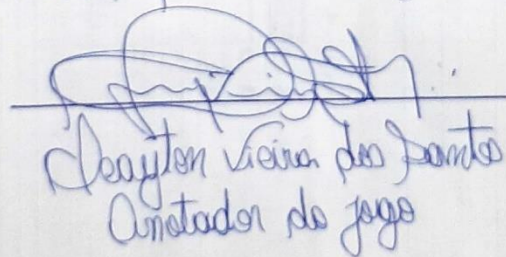 Cleayton Vieira dos Santos
Anotador do jogo